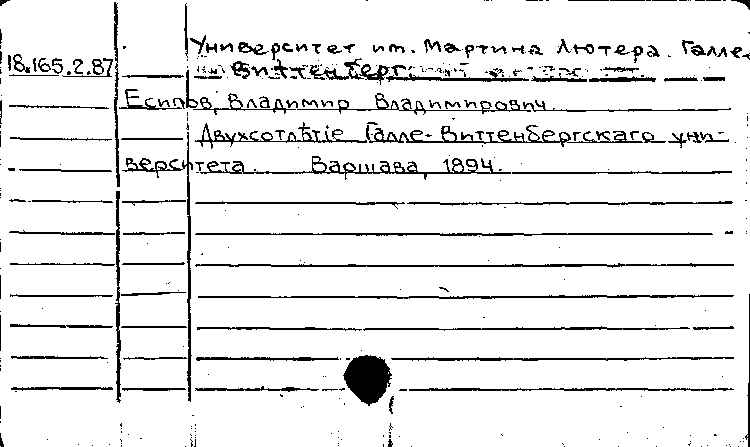 Университет им. Мартина Лютера. Галле-
18.165.2.87 Виттенберг
Есипов, Владимир Владимирович.
Двухсотлѣтіе Галле-Виттенбергскаго уни-
верситета. Варшава, 1894.